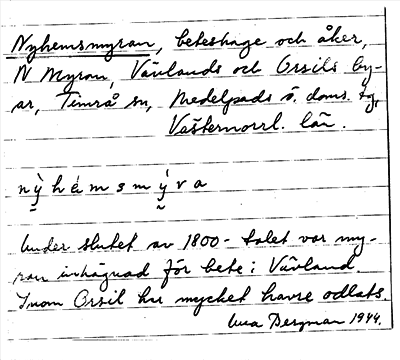 Nyhemsmyran, beteshage och åker,
N Myran, Vävlands och Orsils by-
ar, Timrå sn, Medelpads ö. doms. tg,
Västernorrl. län.
nỳhémsmýva
Under slutet av 1800-talet var my-
ran inhägnad för bete i Vävland
Inom Orsil har mycket havre odlats.
Bergman 1944.